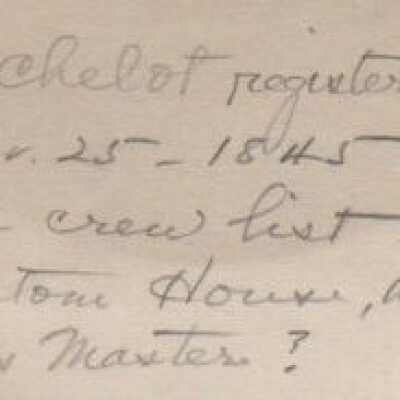 chelot register
v. 25 - 1845
crew list
tom House,
s Master ?